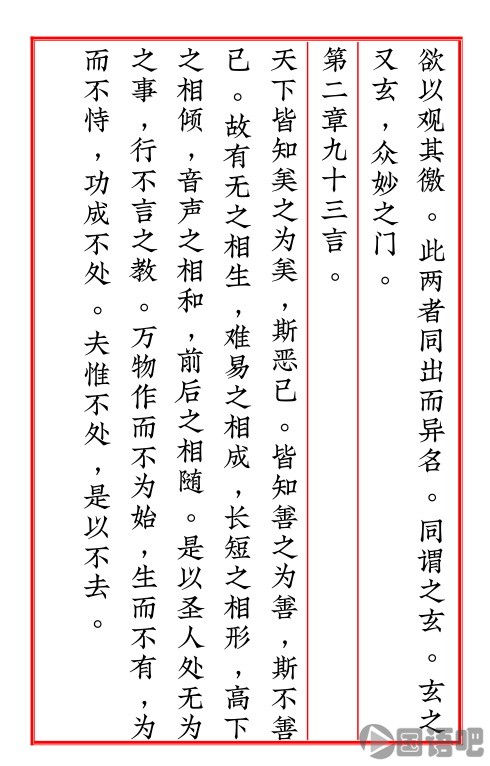 欲以观其徼。此两者同出而异名。同谓之玄。玄之
又玄，众妙之门。
第二章九十三言。
天下皆知美之为美，斯恶已。皆知善之为善，斯不善
已。故有无之相生，难易之相成，长短之相形，高下
之相倾，音声之相和，前后之相随。是以圣人处无为
之事，行不言之教。万物作而不为始，生而不有，为
而不恃，功成不处。夫惟不处，是以不去。
国语吧